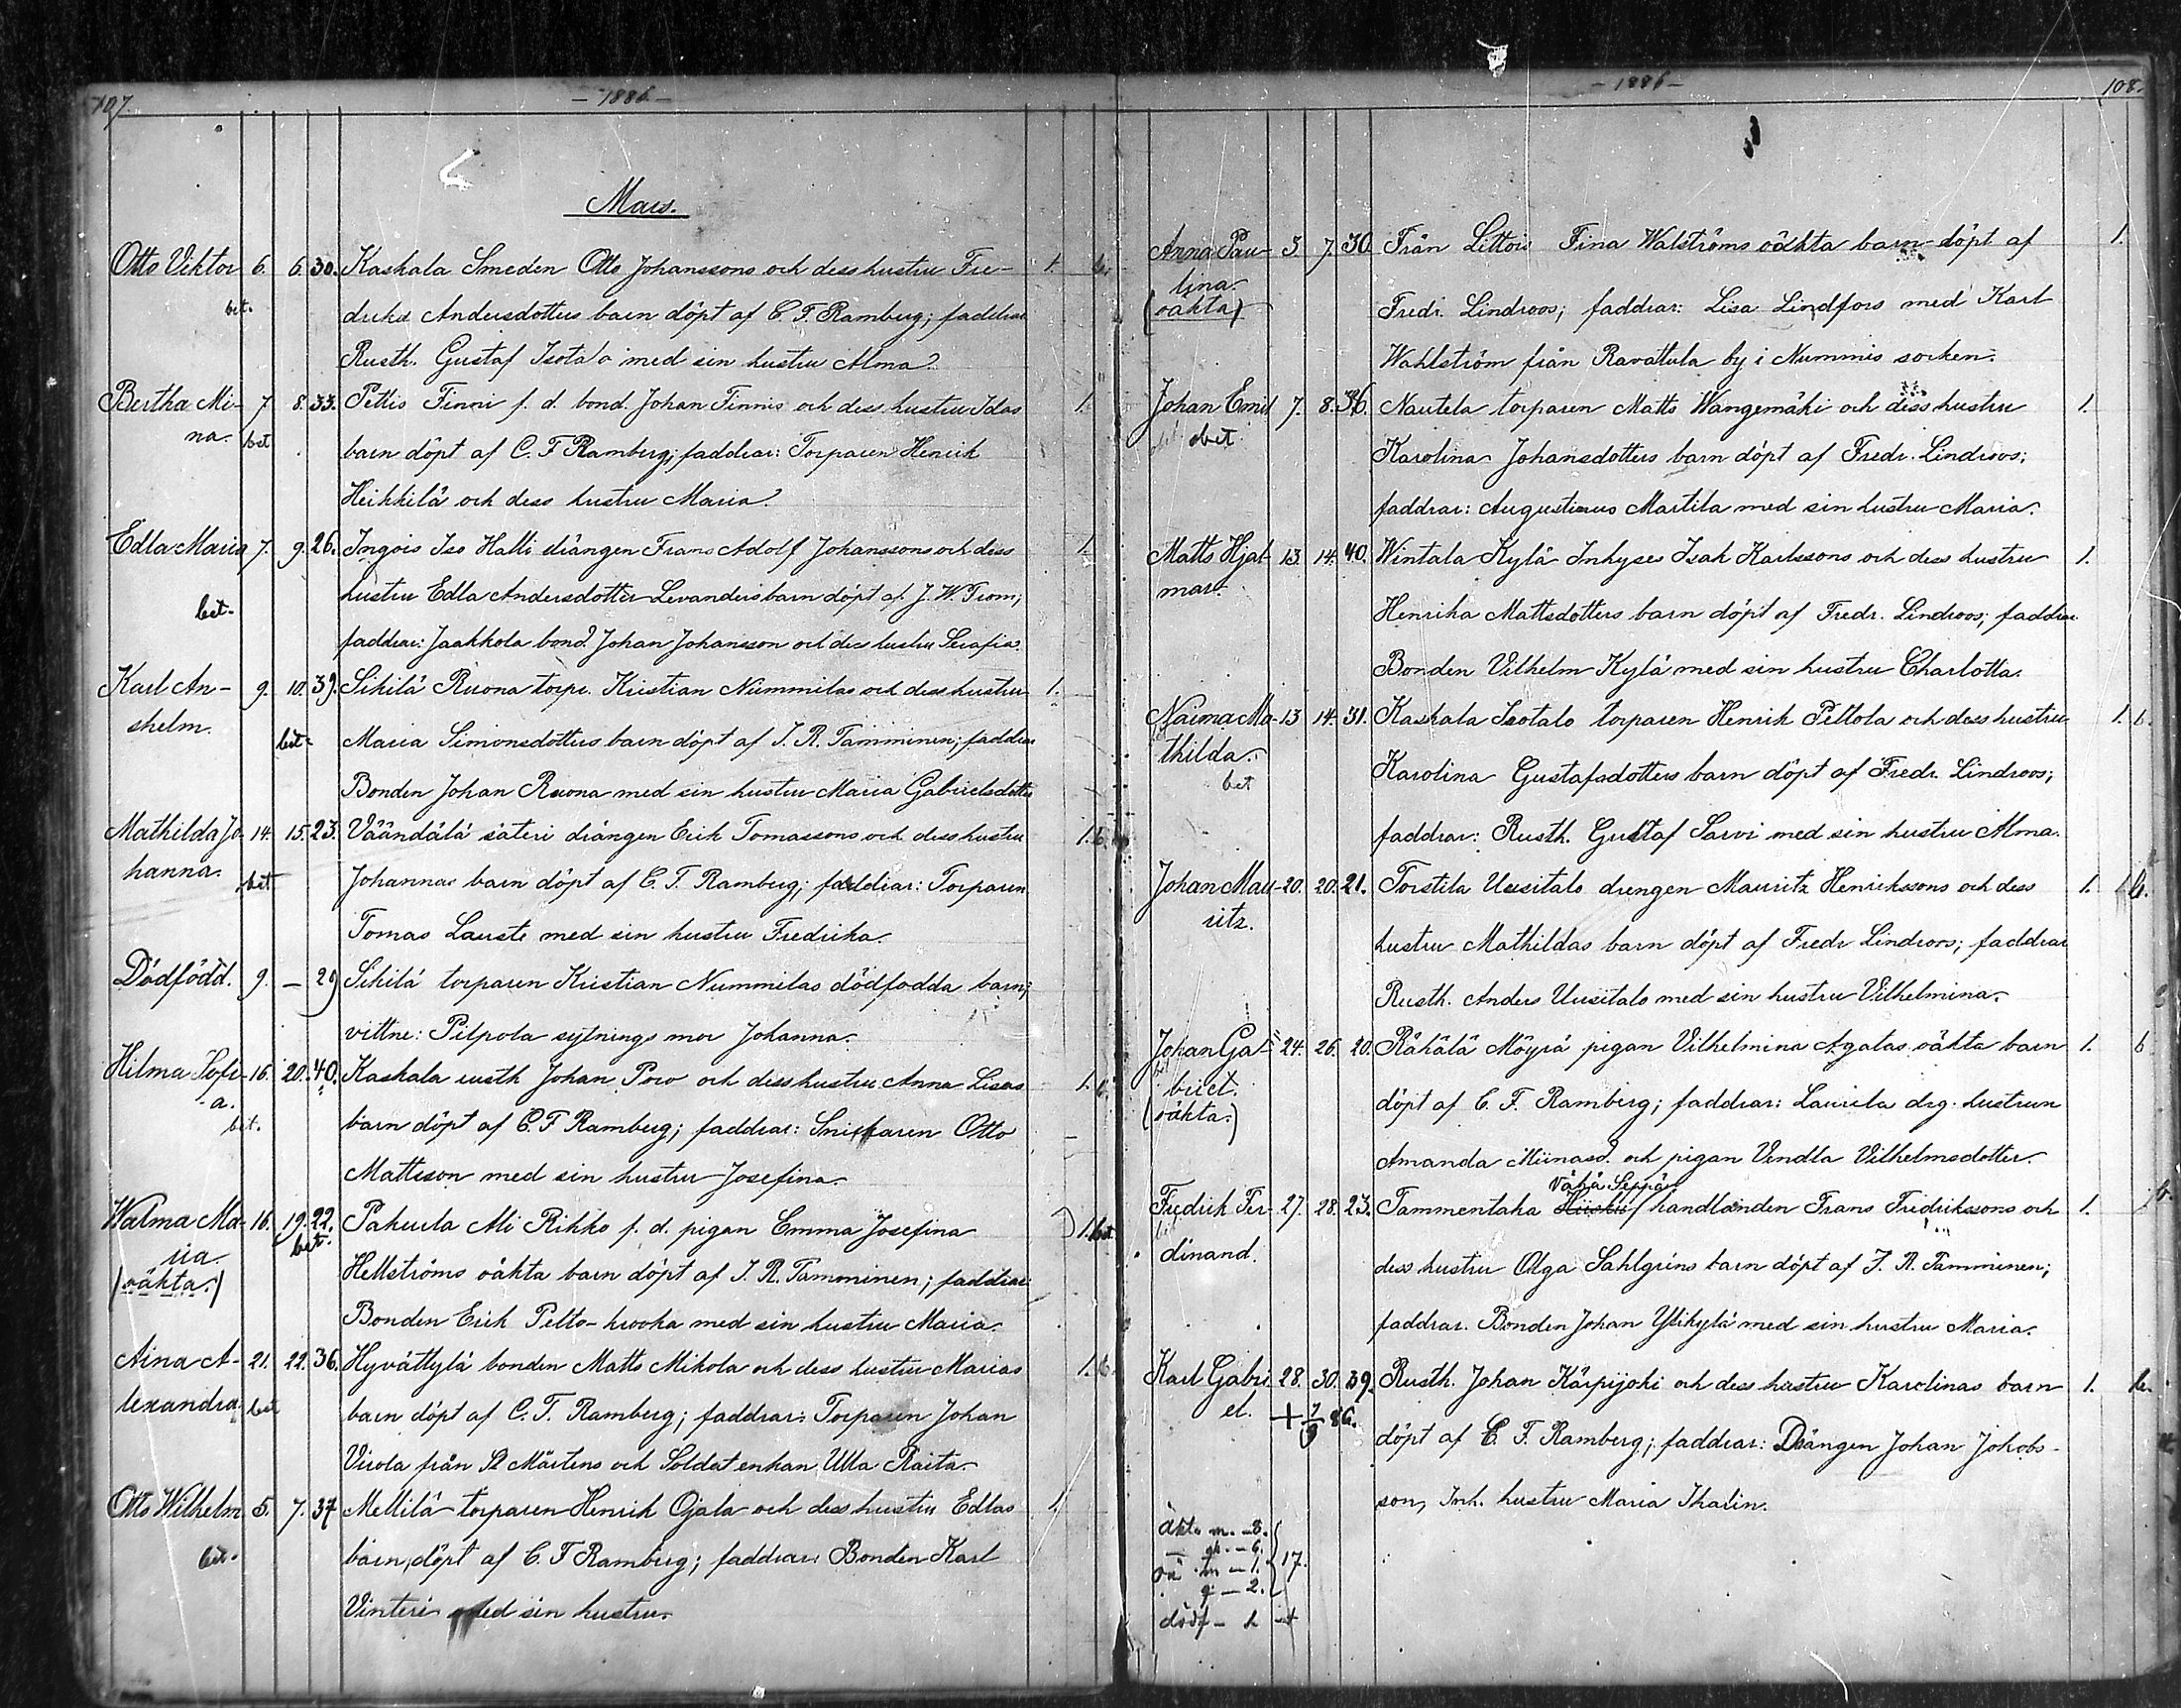 107.
- 1886 -
Mars.
Otto Viktor 6. 6. 30. Kaskala Smeden Otto Johanssons och dess hustru Fre- 1. b.
bet. drika Andersdotters barn döpt af C. F. Ramberg; faddrar
Rusth. Gustaf Isotalo med sin hustru Alma.
Bertha Mi- 7. 8. 33. Pettis Finni f. d. bond. Johan Finnis och dess hustru Idas 1.
na. bet barn döpt af C. F. Ramberg; faddrar: Torparen Henrik
Heikkilä och dess hustru Maria.
Edla Maria 7. 9. 26. Ingois Iso Halli drängen Frans Adolf Johanssons och dess 1.
bet. hustru Edla Andersdotter Levanders barn döpt af J. W. From;
faddrar: Jaakkola bond. Johan Johansson och dess hustru Serafia.
Karl An- 9. 10. 39. Sikilä Ruona torpr. Kristian Nummilas och dess hustru 1.
shelm. bet. Maria Simonsdotters barn döpt af J. R. Tamminen; faddrar
Bonden Johan Ruona med sin hustru Maria Gabrielsdotter
Mathilda Jo- 14. 15. 23. Väändälä säteri drängen Erik Tomassons och dess hustru 1. b.
hanna. bet Johannas barn döpt af C. F. Ramberg; faddrar: Torparen
Tomas Lauste med sin hustru Fredrika.
Dödfödd. 9. — 29 Sikilä torparen Kristian Nummilas dödfödda barn;
vittne: Pilpola sytnings mor Johanna.
Hilma Sofi- 16. 20. 40. Kaskala rusth Johan Poso och dess hustru Anna Lisas 1. b.
a. bet. barn döpt af C. F. Ramberg; faddrar: Snickaren Otto
Mattsson med sin hustru Josefina.
Walma Ma- 16. 19. 22. Pakurla Ali Rikko f. d. pigan Emma Josefina 1. bet
ria. bet. (oäkta.) Hellströms oäkta barn döpt af J. R. Tamminen; faddrar:
Bonden Erik Pelto-kooka med sin hustru Maria.
Aina A- 21. 22. 36. Hyvättylä bonden Matts Mikola och dess hustru Marias 1. b.
lexandra. bet barn döpt af C. F. Ramberg; faddrar: Torparen Johan
Virola från St Mårtens och Soldat enkan Ulla Raita.
Otto Wilhelm 5. 7. 37 Mellilä torparen Henrik Ojala och dess hustru Edlas 1.
bet. barn döpt af C. F. Ramberg; faddrar: Bonden Karl
Vinteri med sin hustru.
- 1886 -
108.
Anna Pau- 5 7. 30. Från Littois Fina Walströms oäkta barn döpt af 1.
lina. (oäkta) Fredr. Lindroos; faddrar: Lisa Lindfors med Karl
Wahlström från Ravattula by i Nummis socken.
Johan Emil 7. 8. 36. Nautela torparen Matts Wangemäki och dess hustru 1.
obet. Karolina Johansdotters barn döpt af Fredr. Lindroos;
faddrar: Augustinus Martila med sin hustru Maria.
Matts Hjal- 13. 14. 40. Wintala Kylä Inhyses Isak Karlssons och dess hustru 1.
mar. Henrika Mattsdotters barn döpt af Fredr. Lindroos; faddrar
Bonden Vilhelm Kylä med sin hustru Charlotta.
Naima Ma- 13 14. 31. Kaskala Isotalo torparen Henrik Peltola och dess hustru 1. b.
thilda. bet Karolina Gustafsdotters barn döpt af Fredr. Lindroos;
faddrar: Rusth. Gustaf Sarvi med sin hustru Alma.
Johan Mau- 20. 20. 21. Torstila Uusitalo drengen Mauritz Henrikssons och dess 1. b.
ritz. hustru Mathildas barn döpt af Fredr Lindroos; faddrar
Rusth. Anders Uusitalo med sin hustru Vilhelmina.
Johan Ga- 24. 26. 20. Rähälä Möyrä pigan Vilhelmina Agatas oäkta barn 1. b
briel. (oäkta.) döpt af C. F. Ramberg; faddrar: Laurila drg. hustrun
Amanda Miinasd. och pigan Vendla Vilhelmsdotter.
Vähä Seppäs
Fredrik Fer- 27. 28. 23. Tammentaka handlanden Frans Fredrikssons och 1. b.
dinand. dess hustru Olga Sahlgrens barn döpt af J. R. Tamminen;
faddrar. Bonden Johan Ylikylä med sin hustru Maria.
Karl Gabri- 28. 30. 39. Rusth. Johan Kärpijoki och dess hustru Karolinas barn 1. b.
el. + 7/9 86. döpt af C. F. Ramberg; faddrar: Drängen Johan Jakobs-
son, Inh. hustru Maria Thalin.
äkta m. - 8.
— q. - 6.
oä m - 1. 17.
q - 2.
dödf -